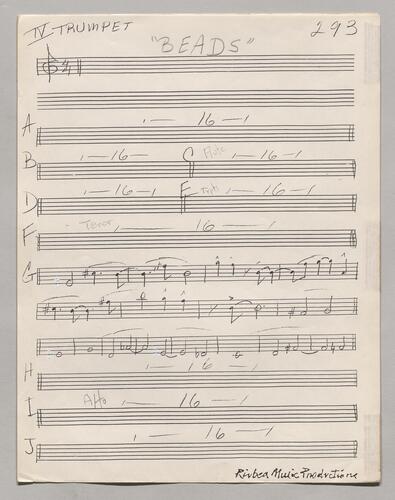 IV-TRUMPET
293
"BEADS"
A 16
B 16 C Flute 16
D 16 E 16
F Tenor 16
G
H 16
I Alto 16
J 16
Rivbea Music Productions